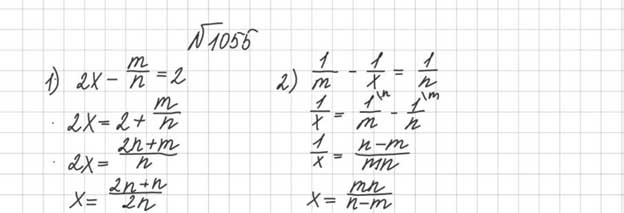 №1055
1) 2x - m/n = 2
2x = 2 + m/n
2x = (2n+m)/n
x = (2n+n)/2n
2) 1/m - 1/x = 1/n
1/x = 1\n/m - 1\m/n
1/x = (n-m)/mn
x = mn/(n-m)